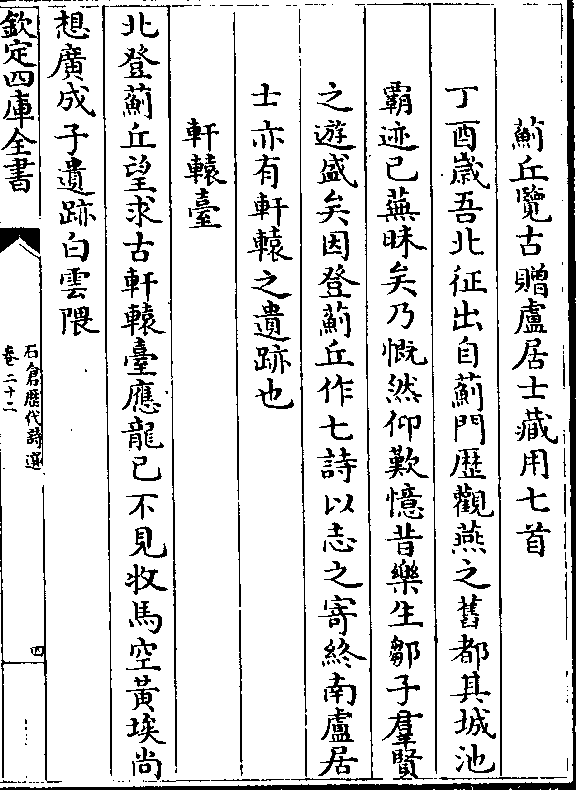 薊丘覽古贈盧居士藏用七首
丁酉歳吾北征出自薊門歴觀燕之舊都其城池
霸迹已蕪昧矣乃慨然仰歎憶昔樂生鄒子羣賢
之遊盛矣因登薊丘作七詩以志之寄終南盧居
士亦有軒轅之遺跡也
軒轅臺
北登薊丘望求古軒轅臺應龍已不見牧馬空黄埃尚
想廣成子遺跡白雲隈
欽定四庫全書
石倉歴代詩選
卷二十二
四